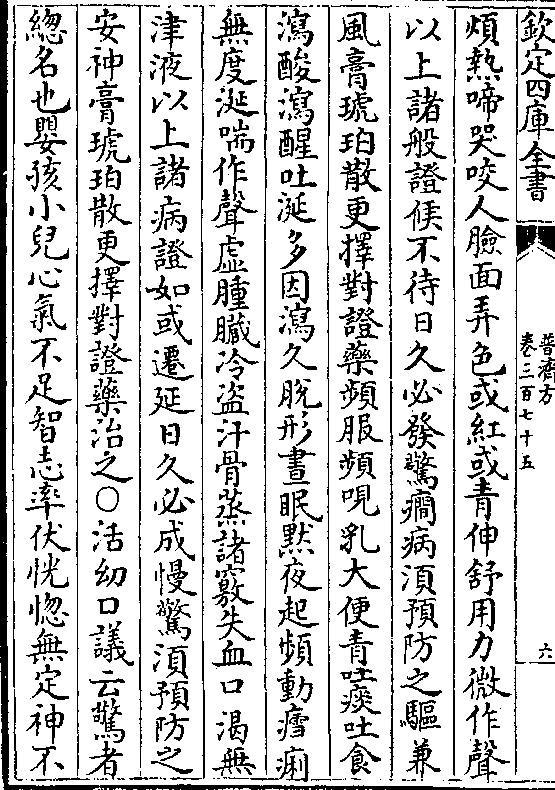 欽定四庫全書
普濟方
卷三百七十五
六
煩熱啼哭咬人臉面弄色或紅或青伸舒用力微作聲
以上諸般證候不待日久必發驚癇病湏預防之驅兼
風膏琥珀散更擇對證藥頻服頻哯乳大便青吐痰吐食
瀉酸瀉醒吐涎多因瀉久脫形晝眠黙夜起頻動癨痢
無度涎喘作聲虛腫臟冷盗汗骨蒸諸竅失血口渴無
津液以上諸病證如或遷延日久必成慢驚湏預防之
安神膏琥珀散更擇對證藥治之○活幼口議云驚者
總名也嬰孩小兒心氣不足智志率伏恍惚無定神不